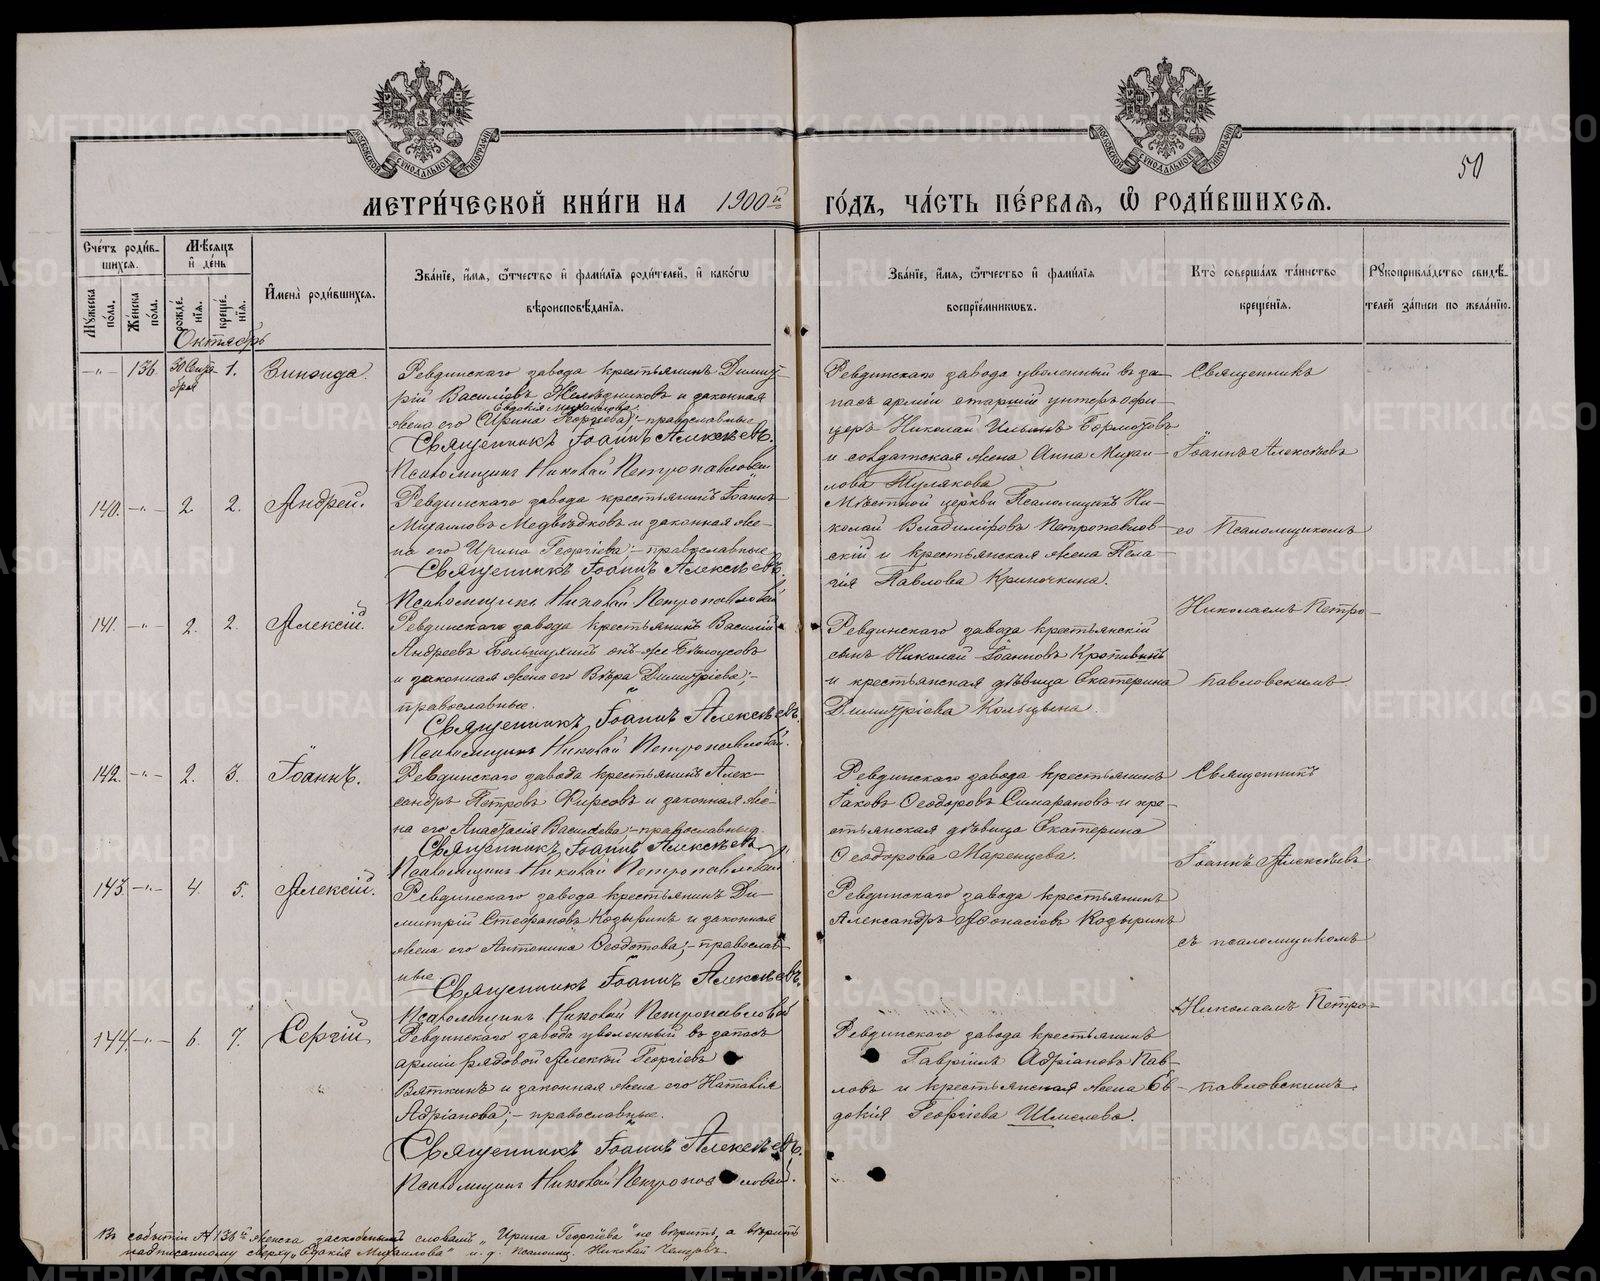 МОСКОВСКОЙ СѴНОДАЛЬНОЙ ТИПОГРАФІИ
МОСКОВСКОЙ СѴНОДАЛЬНОЙ ТИПОГРАФІИ
50
МЕТРИ́ЧЕСКОЙ КНИ́ГИ НА 1900й ГО́ДЪ, ЧА́СТЬ ПЕ́РВАЯ, Ѡ РОДИ́ВШИХСЯ.
Сче́тъ роди́в-
шихся.
Мꙋжеска по́ла.
Же́нска по́ла.
Мѣ́сяцъ и де́нь
рожде́-нія.
креще́-нія.
Имена̀ роди́вшихся.
Зва́ніе, и́мя, ѻ҆́тчество и фами́лія роди́телей, и како́гѡ
вѣроисповѣ́данія.
Зва́ніе, и́мя, ѻ҆́тчество и фами́лія
воспріе́мниковъ.
Кто̀ соверша́лъ та́инство
креще́нія.
Рꙋкоприкла́дство свидѣ́-
телей за́писи по жела́нію.
Октябрь
-"- 136. 30 Сентя-
бря 1. Зинаида.
Ревдинскаго завода крестьянинъ Димит-
рій Василіевъ Желѣзниковъ и законная
Евдокія Михайлова
жена его (Ирина Георгіева);- православные
Священникъ Іоаннъ Алексѣевъ.
Псаломщикъ Николай Петропавловскій
Ревдинскаго завода уволенный въ за-
пасъ арміи старшій унтеръ офи-
церъ Николай Ильинъ Бормотовъ
и солдатская жена Анна Михаи-
лова Тулякова
Священникъ
Іоаннъ Алексѣевъ
140. -"- 2. 2. Андрей.
Ревдинскаго завода крестьянинъ Іоаннъ
Михаиловъ Медвѣдковъ и законная же-
на его Ирина Георгіева;- православные
Священникъ Іоаннъ Алексѣевъ.
Псаломщикъ Николай Петропавловскій
Мѣстной церкви Псаломщикъ Ни-
колай Владиміровъ Петропавлов-
скій и крестьянская жена Пела-
гія Павлова Криночкина.
со Псаломщикомъ
Николаемъ Петро-
141. -"- 2. 2. Алексій.
Ревдинскаго завода крестьянинъ Василій
Андреевъ онъ-же Бѣлоусовъ
и законная жена его Вѣра Димитріева;-
православные.
Священникъ Іоаннъ Алексѣевъ.
Псаломщикъ Николай Петропавловскій.
Ревдинскаго завода крестьянскій
сынъ Николай Іоанновъ
и крестьянская дѣвица Екатерина
Димитріева Кольцына.
павловскимъ
142. -"- 2. 3. Іоаннъ.
Ревдинскаго завода крестьянинъ Алек-
сандръ Петровъ Фирсовъ и законная же-
на его Анастасія Васильева;- православные.
Священникъ Іоаннъ Алексѣевъ
Псаломщикъ Николай Петропавловскій
Ревдинскаго завода крестьянинъ
Іаковъ Ѳеодоровъ и кре-
стьянская дѣвица Екатерина
Ѳеодорова Маренцева.
Священникъ
Іоаннъ Алексѣевъ
143. -"- 4. 5. Алексій.
Ревдинскаго завода крестьянинъ Ди-
митрій Стефановъ Козыринъ и законная
жена его Антонина Ѳеодотова;- православ-
ные.
Священникъ Іоаннъ Алексѣевъ.
Псаломщикъ Николай Петропавловскій
Ревдинскаго завода крестьянинъ
Александръ Аѳонасіевъ Козыринъ
съ псаломщикомъ
Николаемъ Петро-
144. -"- 6. 7. Сергій
Ревдинскаго завода уволенный въ запасъ
арміи рядовой Алексѣй Георгіевъ
Вяткинъ и законная жена его Наталія
Адріанова;- православные.
Священникъ Іоаннъ Алексѣевъ.
Псаломщикъ Николай Петропавловскій.
Ревдинскаго завода крестьянинъ
Гавріилъ Адріановъ Пав-
ловъ и крестьянская жена Ев-
докія Георгіева Шмелева.
павловскимъ.
Въ событіи № 136й женска заскобленнымъ словамъ „Ирина Георгіева" не вѣрить, а вѣрить
надписанному сверху „Евдокія Михаилова" и. д. псаломщ. Николай
METRIKI.GASO-URAL.RU